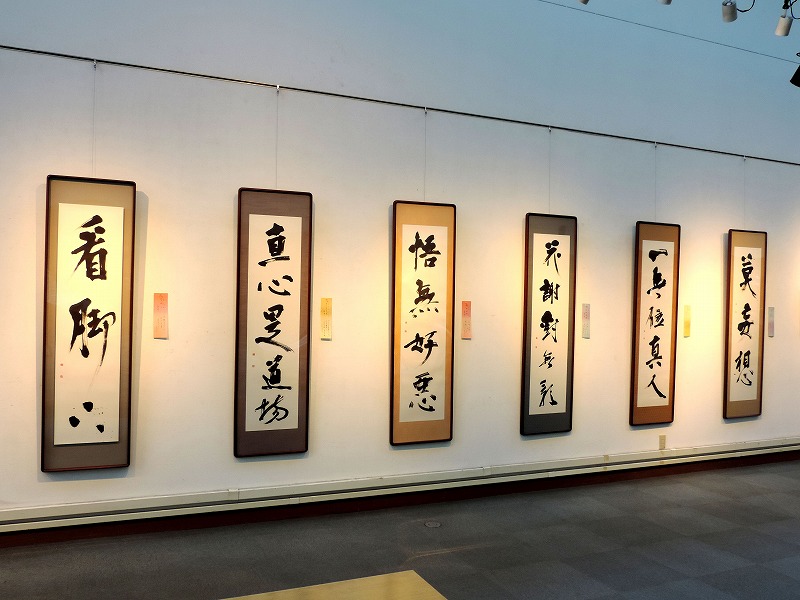 看脚下
直心是道場
悟無好悪
花謝樹無影
一無位真人
莫妄想